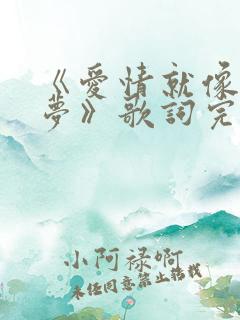 《愛情就像
夢》歌詞完
小阿祿啊
未經同意禁止轉載